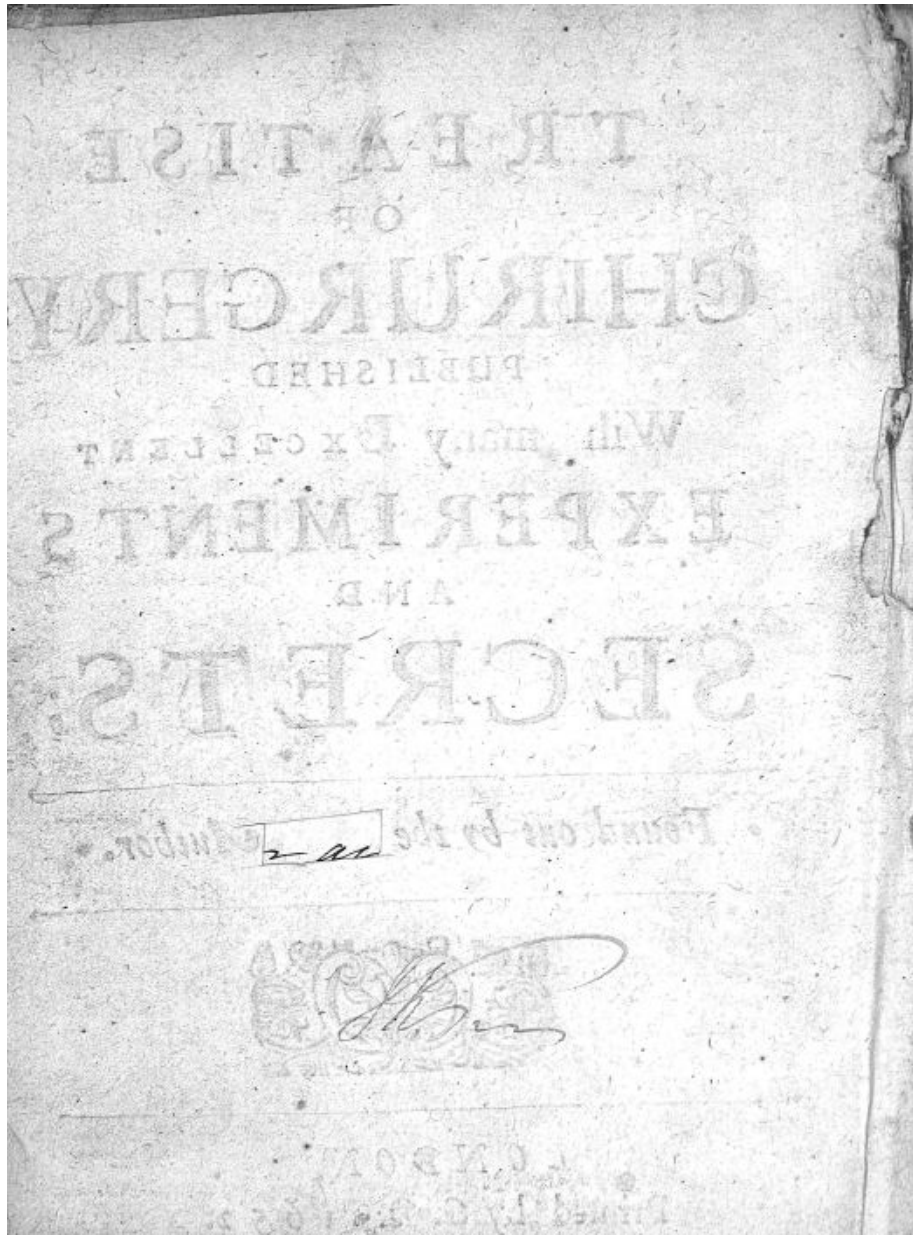 A
TREATISE
OF
CHIRURGERY
PUBLISHED
With many EXCELLENT
EXPERIMENTS
AND
SECRETS;
Found out by the Author.
LONDON
Printed by G. D. 1652.